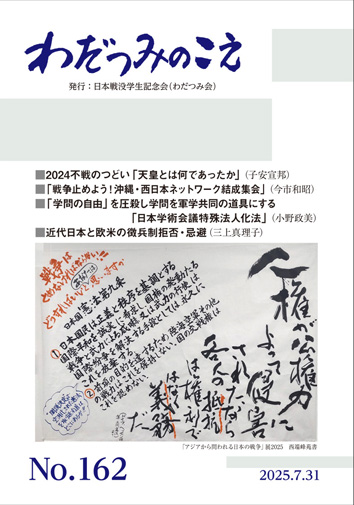 わだつみのこえ
発行：日本戦没学生記念会（わだつみ会）
■2024不戦のつどい「天皇とは何であったか」（子安宣邦）
■「戦争止めよう！沖縄・西日本ネットワーク結成集会」（今市和昭）
■「学問の自由」を圧殺し学問を軍学共同の道具にする
「日本学術会議特殊法人化法」（小野政美）
■近代日本と欧米の徴兵制拒否・忌避（三上真理子）
人権が公権力に
よって侵害
されたなら
各人の抵抗
は権利で
はなく
義務
だ
日本国憲法第九条
①日本国民は正義と秩序を基調とする
国際平和を誠実に希求し、国権の発動たる
戦争と武力による威嚇又は武力の行使は
国際紛争を解決する手段としては永久に
これを放棄する
②前項の目的を達するため、陸海空軍その他
の戦力はこれを保持しない。国の交戦権は
これを認めない
「アジアから問われる日本の戦争」展2025　西端峰苑書
No.162
2025.7.31